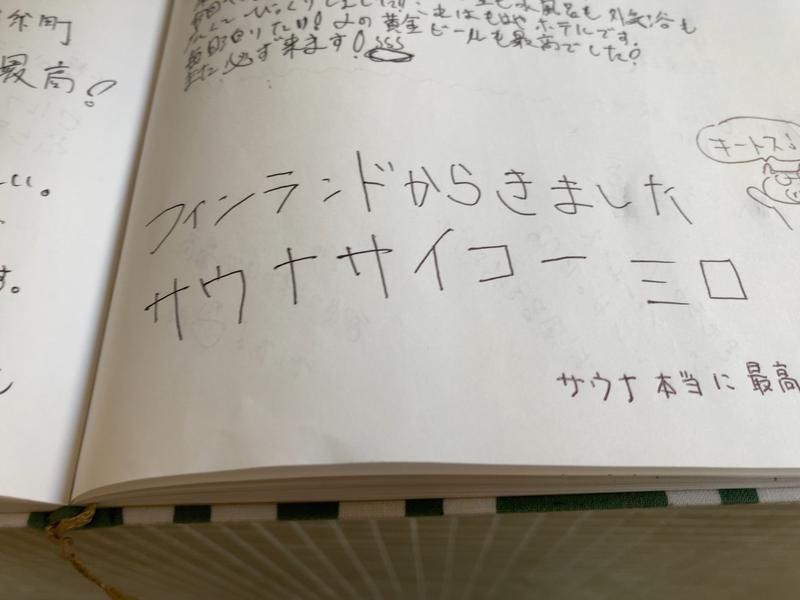 町
最高!
い。
す。
も水風呂も外気浴も
びっくりしました!
これはもはやホテルです。
泊りたい!よの黄金ビールも最高でした!
また必ず来ます!
キートス!
フィンランドからきました
サウナサイコー ミロ
サウナ本当に最高